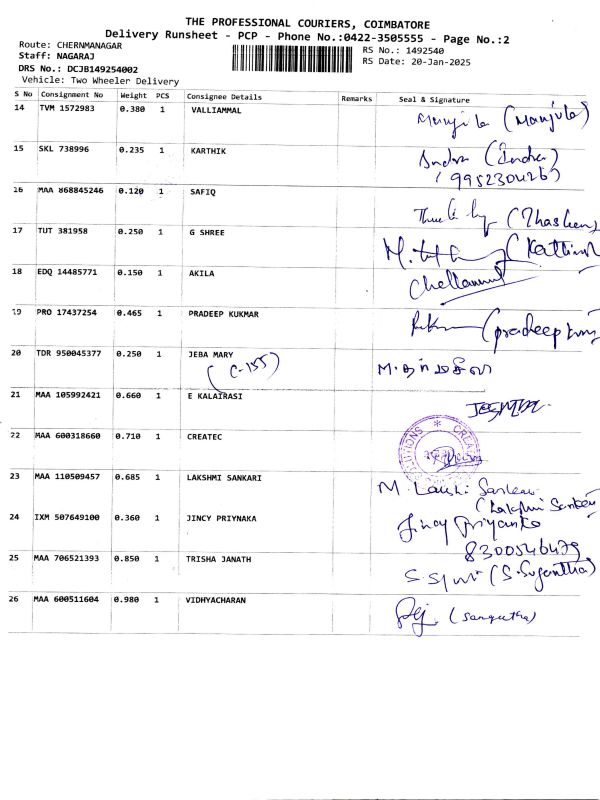 THE PROFESSIONAL COURIERS, COIMBATORE
Delivery Runsheet - PCP - Phone No.:0422-3505555 - Page No.:2
Route: CHERNMANAGAR
Staff: NAGARAJ
DRS No.: DCJB149254002
Vehicle: Two Wheeler Delivery
RS No.: 1492540
RS Date: 20-Jan-2025
S No Consignment No Weight PCS Consignee Details Remarks Seal & Signature
14 TVM 1572983 0.380 1 VALLIAMMAL (Manjula)
15 SKL 738996 0.235 1 KARTHIK (Indra)
16 MAA 868845246 0.120 1 SAFIQ
17 TUT 381958 0.250 1 G SHREE
18 EDQ 14485771 0.150 1 AKILA
19 PRO 17437254 0.465 1 PRADEEP KUKMAR
20 TDR 950045377 0.250 1 JEBA MARY
(C-155)
21 MAA 105992421 0.660 1 E KALAIRASI
22 MAA 600318660 0.710 1 CREATEC
23 MAA 110509457 0.685 1 LAKSHMI SANKARI
24 IXM 507649100 0.360 1 JINCY PRIYNAKA Jincy Priyanka
8300546479
25 MAA 706521393 0.850 1 TRISHA JANATH (S.Sugantha)
26 MAA 600511604 0.980 1 VIDHYACHARAN (Sangeetha)